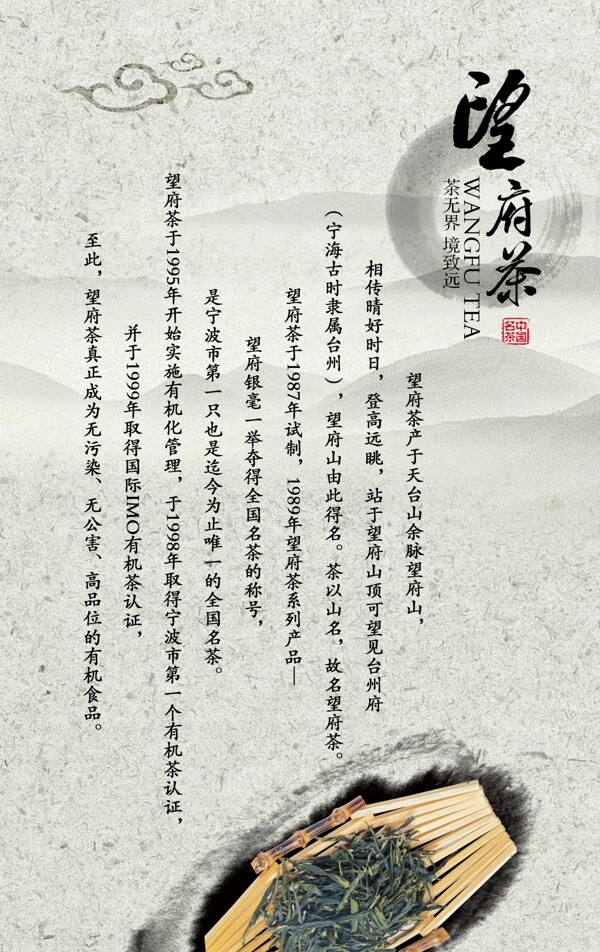 望府茶
WANGFU TEA
茶无界 境致远
中国名茶
望府茶产于天台山余脉望府山，
相传晴好时日，登高远眺，站于望府山顶可望见台州府
（宁海古时隶属台州），望府山由此得名。茶以山名，故名望府茶。
望府茶于1987年试制，1989年望府茶系列产品—
望府银毫一举夺得全国名茶的称号，
是宁波市第一只也是迄今为止唯一的全国名茶。
望府茶于1995年开始实施有机化管理，于1998年取得宁波市第一个有机茶认证，
并于1999年取得国际IMO有机茶认证，
至此，望府茶真正成为无污染、无公害、高品位的有机食品。